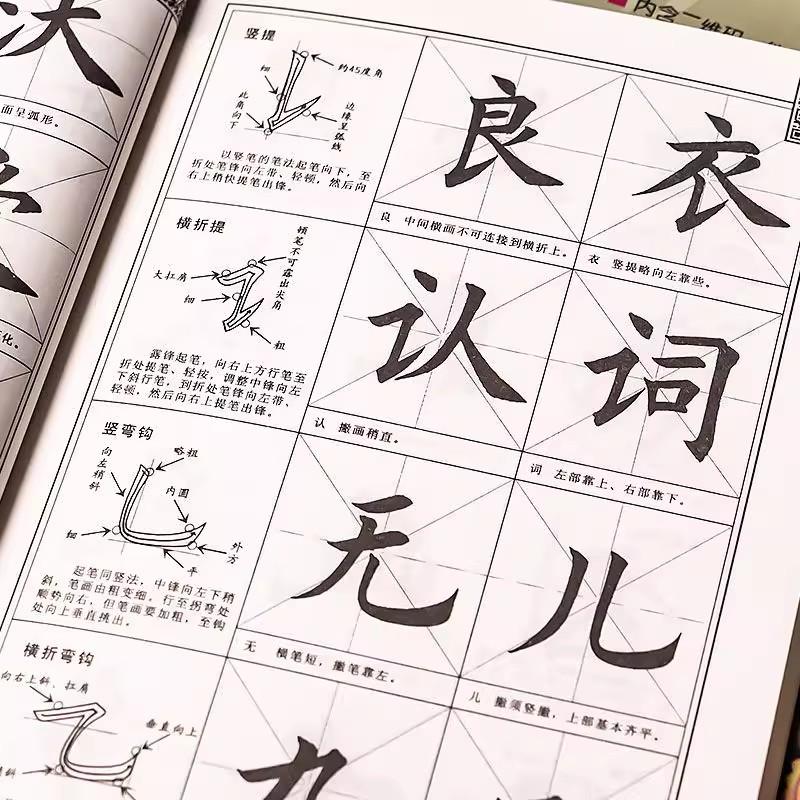 内含二维码
面呈弧形。
化。
竖提
约45度角
细
此角向下
边缘呈弧线
以竖笔的笔法起笔向下，至
折处笔锋向左带、轻顿，然后向
右上稍快提笔出锋。
良
良 中间横画不可连接到横折上。
衣
衣 竖提略向左靠些。
横折提
顿笔不可露出尖角
大扛角
细
粗
露锋起笔，向右上方行笔至
折处提笔、轻按，调整中锋向左
下斜行笔，到折处笔锋向左带、
轻顿，然后向右上提笔出锋。
认
认 撇画稍直。
词
词 左部靠上、右部靠下。
竖弯钩
向左稍斜
略粗
内圆
细
外方
平
起笔同竖法，中锋向左下稍
斜，笔画由粗变细，行至拐弯处
顺势向右，但笔画要加粗，至钩
处向上垂直挑出。
无
无 横笔短，撇笔靠左。
儿
儿 撇须竖撇，上部基本齐平。
横折弯钩
向右上斜、扛角
垂直向上
稍斜
九